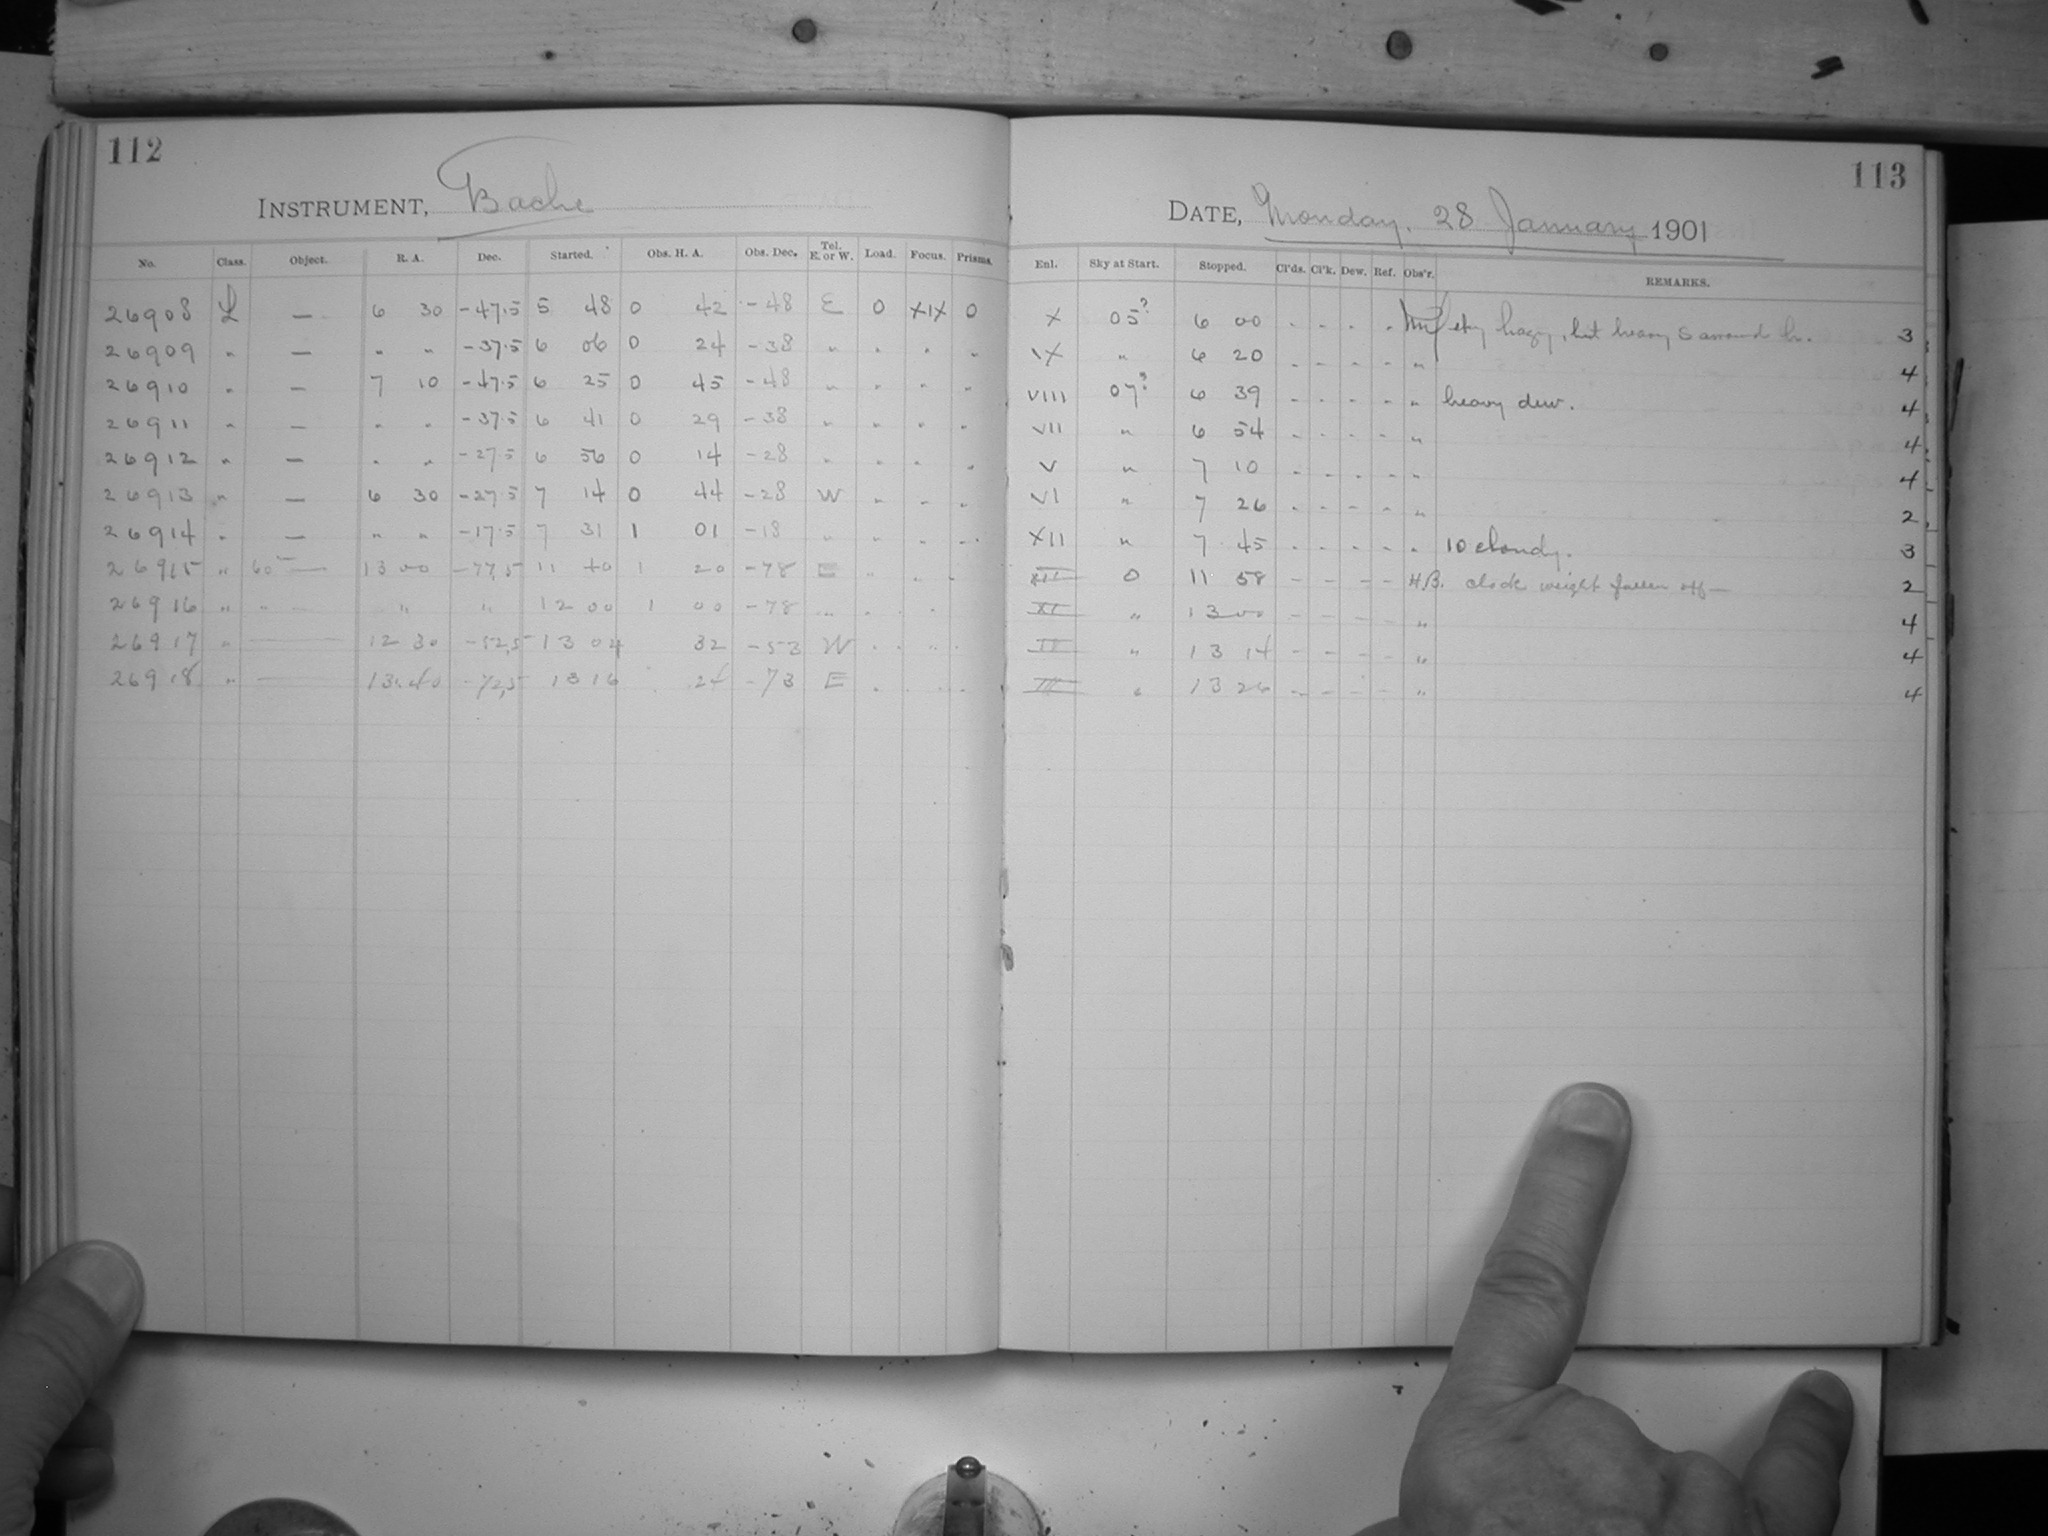 112
INSTRUMENT, Bache
No. Class. Object. R. A. Dec. Started. Obs. H. A. Obs. Dec. Tel. E. or W. Load. Focus. Prisms.
26908 L — 6 30 -47.5 5 48 0 42 -48 E 0 XIX 0
26909 " — " " -37.5 6 06 0 24 -38 " " " "
26910 " — 7 10 -47.5 6 25 0 45 -48 " " " "
26911 " — " " -37.5 6 41 0 29 -38 " " " "
26912 " — " " -27.5 6 56 0 14 -28 " " " "
26913 " — 6 30 -27.5 7 14 0 44 -28 W " " "
26914 " — " " -17.5 7 31 1 01 -18 " " " "
26915 " 60 — 13 00 -77.5 11 40 1 20 -78 E " " "
26916 " " — " " 12 00 1 00 -78 " " "
26917 " — 12 30 -52.5 13 04 32 -53 W " " "
26918 " — 13 40 -72.5 13 16 24 -73 E " " "
113
DATE, Monday. 28 January 1901
Enl. Sky at Start. Stopped. Cl'ds. Cl'k. Dew. Ref. Obs'r. REMARKS.
X 05? 6 00 - - - - sky hazy, but heavy S around h. 3
IX " 6 20 - - - - " 4
VIII 07? 6 39 - - - - " heavy dew. 4
VII " 6 54 - - - - " 4
V " 7 10 - - - - " 4
VI " 7 26 - - - - " 2
XII " 7 45 - - - - " 10 cloudy. 3
XII 0 11 58 - - - - H.B. clock weight fallen off — 2
XI " 13 00 - - - - " 4
" 13 14 - - - - " 4
" 13 26 - - - - " 4